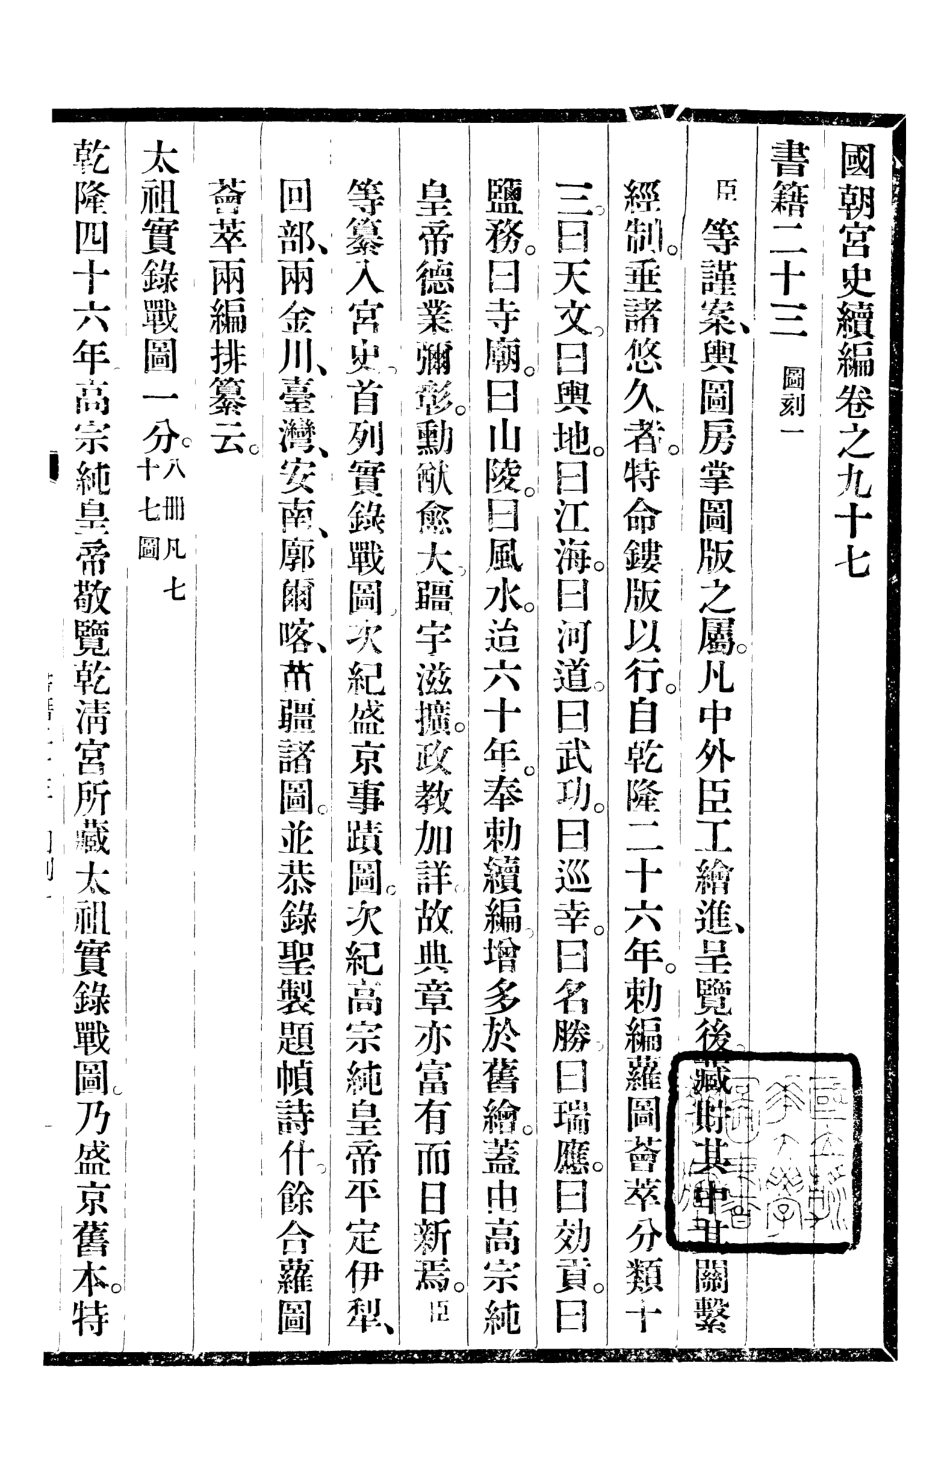 國朝宮史續編卷之九十七
書籍二十三 圖刻一
臣等謹案、輿圖房掌圖版之屬。凡中外臣工繪進、呈覽後。藏貯其中其關繫
經制。垂諸悠久者。特命鏤版以行。自乾隆二十六年。勅編蘿圖薈萃分類十
三。曰天文。曰輿地。曰江海。曰河道。曰武功。曰巡幸。曰名勝。曰瑞應。曰効貢。曰
鹽務。曰寺廟。曰山陵。曰風水。迨六十年。奉勅續編。增多於舊繪。蓋由高宗純
皇帝德業彌彰。勳猷愈大。疆宇滋擴。政教加詳。故典章亦富有而日新焉。臣
等纂入宮史。首列實錄戰圖。次紀盛京事蹟圖。次紀高宗純皇帝平定伊犁、
回部、兩金川、臺灣、安南、廓爾喀、苗疆諸圖。並恭錄聖製題幀詩什。餘合蘿圖
薈萃兩編排纂云。
太祖實錄戰圖一分。八冊凡七
十七圖
乾隆四十六年。高宗純皇帝敬覽乾清宮所藏太祖實錄戰圖。乃盛京舊本。特